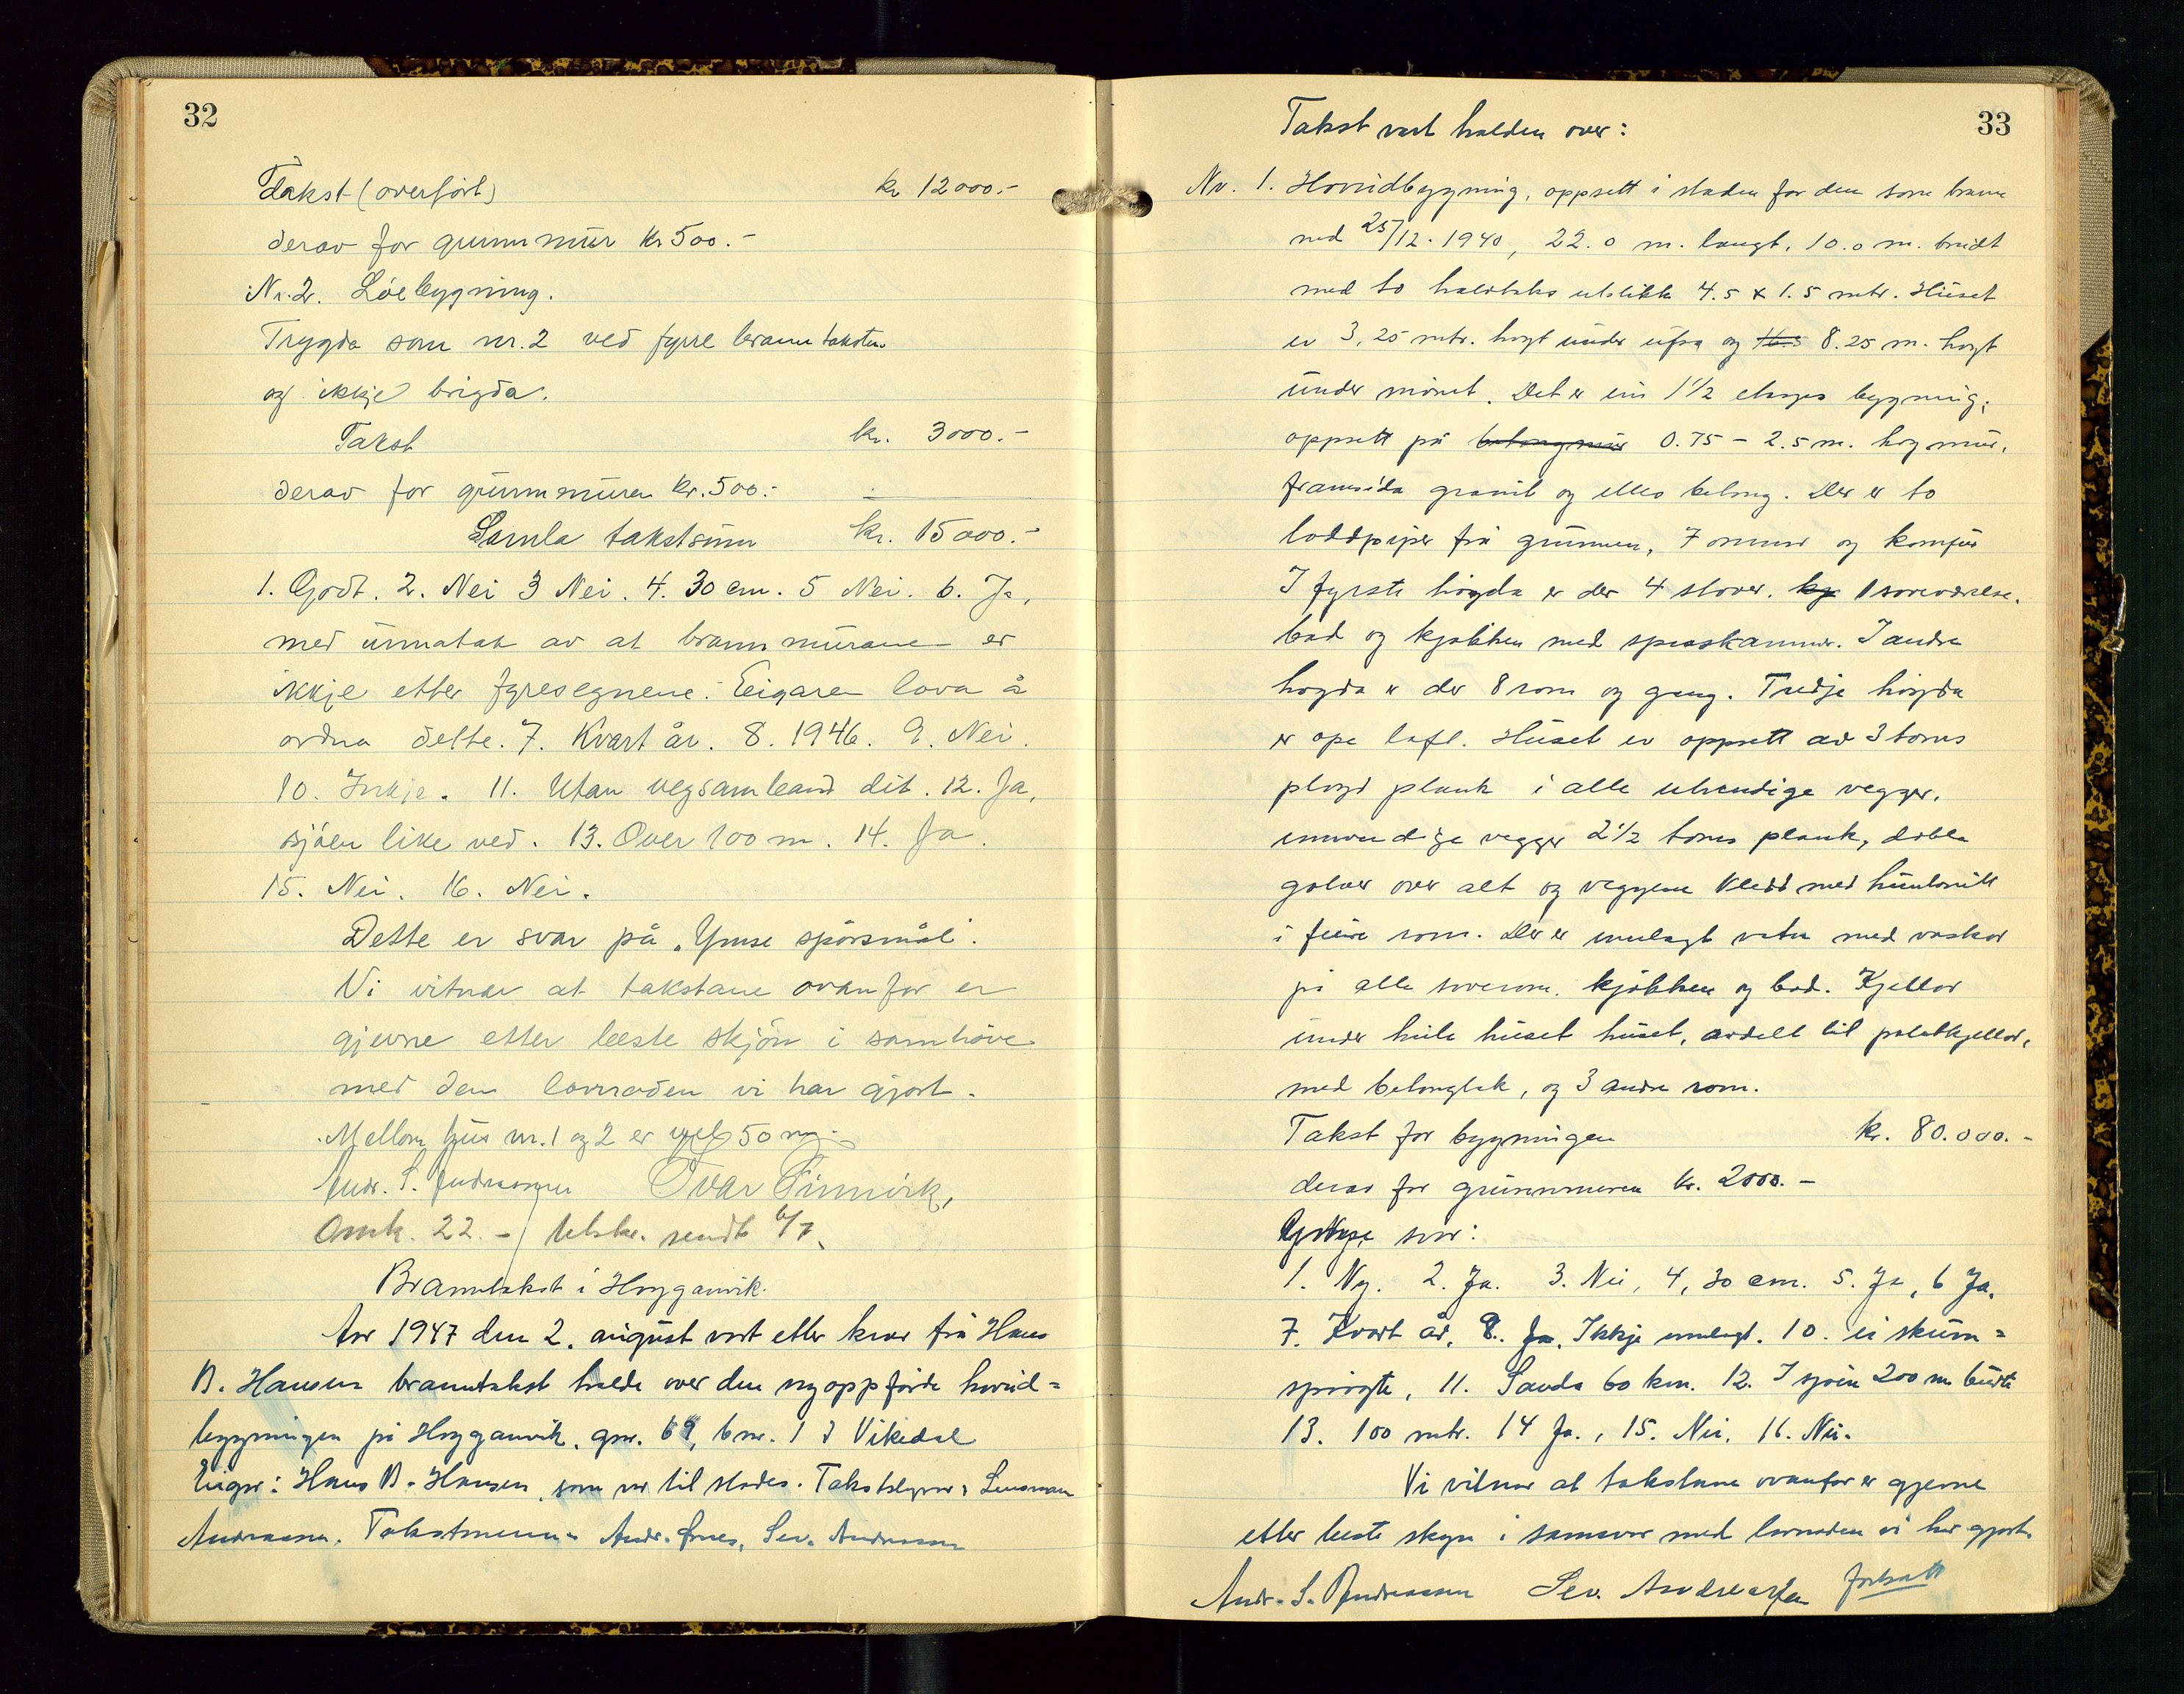 32
Takst (overført) kr 12000.-
derav for grunnmur kr 500.-
Nr. 2. Löebygning.
Trygda som nr. 2 ved fyrre branntaksten
og ikkje brigda.
Takst kr. 3000.-
derav for grunnmuren kr. 500.-
Samla takstsum kr. 15000.-
1. Godt. 2. Nei 3 Nei. 4. 30 cm. 5 Nei. 6. Ja,
med unnatak av at brannmurane er
ikkje etter fyresegnene. Eigaren lova å
ordna dette. 7. Kvart år. 8. 1946. 9. Nei.
10. Inkje. 11. Utan vegsamband dit. 12. Ja,
sjöen like ved. 13. Over 100 m. 14. Ja.
15. Nei. 16. Nei.
Dette er svar på "Ymse spörsmål".
Vi vitnar at takstane ovanfor er
gjevne etter beste skjön i samhöve
med den lovnaden vi har gjort.
Mellom hus nr. 1 og 2 er vel 50 m.
Andr. S. Andreassen Ivar
Omk. 22.- Utskr. sendt 6/7
Branntakst i Hogganvik.
Aar 1947 den 2. august vart etter krav frå Hans
B. Hansen branntakst halde over den nyoppförde hovud=
bygningen på Hogganvik, gnr. 69, bnr. 1 i Vikedal
Eigar: Hans B. Hansen, som var til stades. Takststyrar: Lensmann
Andreassen. Takstmenn: Andr. Imes, Sev. Andreassen
33
Takst vart halden over:
Nr. 1. Hovudbygning, oppsett i staden for den som brann
ned 25/12. 1940, 22.0 m. langt, 10.0 m. breidt
med to halvtaks utstikk 4.5 x 1.5 mtr. Huset
er 3,25 mtr. högt under ufsa og 8.25 m. högt
under mönet. Det er ein 1½ etasjes bygning,
oppsett på betongmur 0.75 - 2.5 m. hög mur,
framsida granit og elles betong. Der er to
loddpiper frå grunnen, 7 omnar og komfur
I fyrste högda er der 4 stover, kj 1 soveværelse,
bad og kjökken med speiskammer. I andre
högda er der 8 rom og gang. Tredje högda
er ope loft. Huset er oppsett av 3 toms
plögd plank i alle utvendige vegger,
innvendige vegger 2½ toms plank, doble
golver over alt og veggene kledd med huntonitt
i fleire rom. Der er innlagt vatn med vaskar
på alle soverom, kjökken og bad. Kjellar
under heile huset huset, avdelt til potetkjellar,
med betongtak, og 3 andre rom.
Takst for bygningen kr. 80.000.-
derav for grunnmuren kr. 2000.-
svar:
1. Ny. 2. Ja. 3. Nei, 4, 30 cm. 5. Ja, 6 Ja.
7. Kvart år, 8. Ja. Ikkje innlagt. 10. ei skum=
spröyte, 11. Sauda 60 km. 12. I sjöen 200 m burte
13. 100 mtr. 14 Ja., 15. Nei, 16. Nei.
Vi vitnar at takstane ovanfor er gjevne
etter beste skjön i samsvar med lovnaden vi har gjort.
Andr. S. Andreassen Sev. Andreassen fortsatt